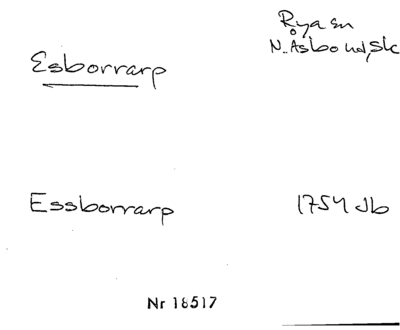 Esborrarp
Rya sn
N. Åsbo hd, Sk
Essborrarp
1754 Jb
Nr 18517